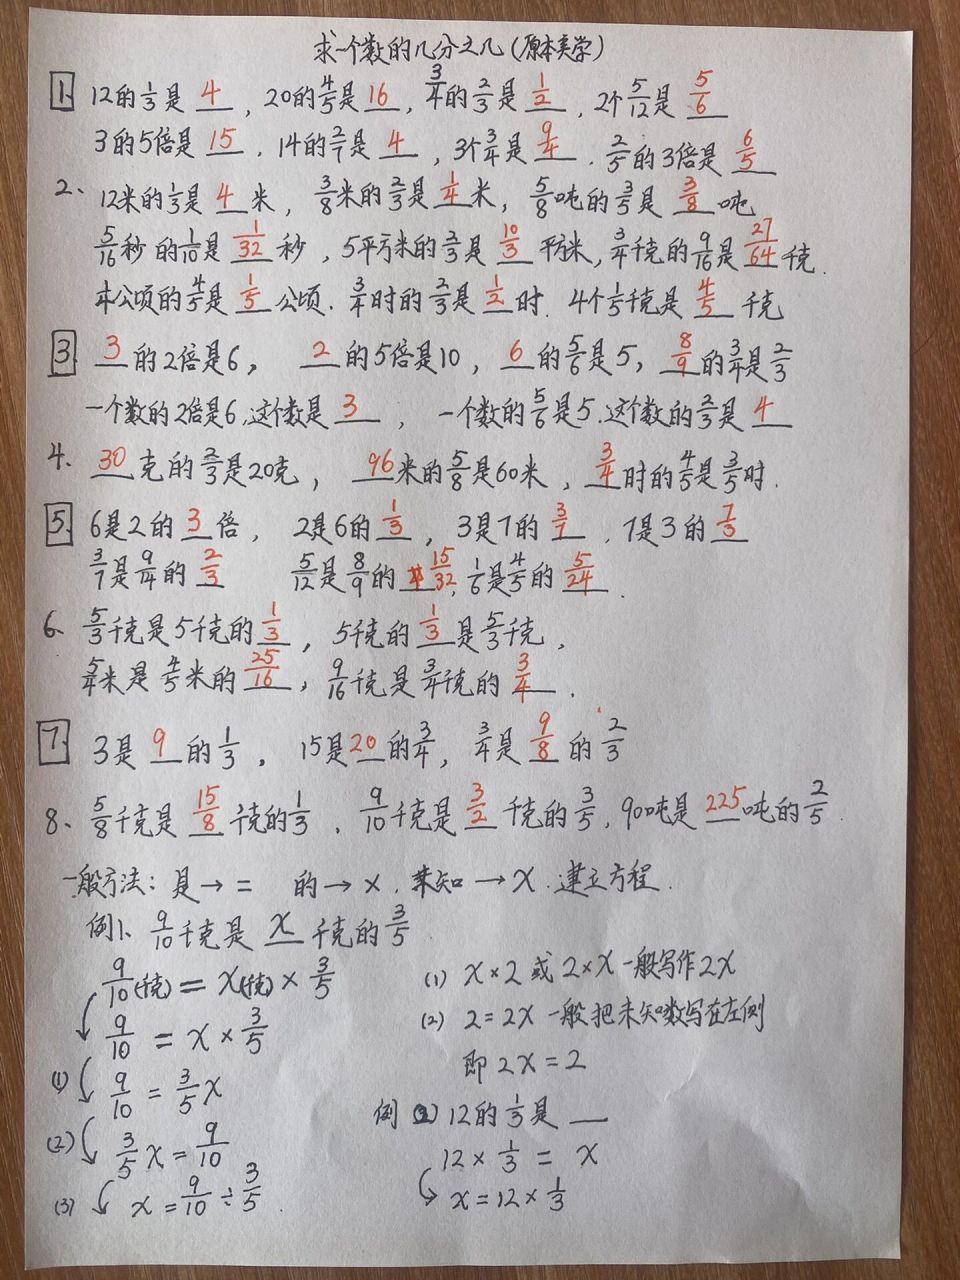 求一个数的几分之几(原本美学)
1. 12的1/3是 4 , 20的4/5是 16 , 3/4的2/3是 1/2 , 2个5/12是 5/6
3的5倍是 15 . 14的2/7是 4 , 3个3/4是 9/4 . 2/5的3倍是 6/5
2、12米的1/3是 4 米, 3/8米的2/3是 1/4 米, 5/8吨的3/5是 3/8 吨
5/16秒的1/10是 1/32 秒, 5平方米的2/3是 10/3 平方米, 3/4千克的9/16是 27/64 千克.
公顷的4/5是 1/5 公顷. 3/4时的2/3是 1/2 时. 4个1/5千克是 4/5 千克
3. 3 的2倍是6, 2 的5倍是10, 6 的5/6是5, 8/9 的3/4是2/3
一个数的2倍是6,这个数是 3 , 一个数的5/6是5.这个数的2/3是 4
4. 30 克的2/3是20克, 96 米的5/8是60米, 3/4 时的4/5是3/5时.
5. 6是2的 3 倍, 2是6的 1/3 , 3是7的 3/7 , 7是3的 7/3
3/7是9/14的 2/3 5/12是8/9的 15/32 , 1/6是4/5的 5/24 .
6、5/3千克是5千克的 1/3 , 5千克的 1/3 是5/3千克,
5/4米是4/5米的 25/16 , 9/16千克是3/4千克的 3/4 .
7. 3是 9 的1/3, 15是 20 的3/4, 3/4是 9/8 的2/3
8、5/8千克是 15/8 千克的1/3 , 9/10千克是 3/2 千克的3/5, 90吨是 225 吨的2/5.
一般方法: 是→= 的→×. 未知→x.建立方程.
例1、9/10千克是 x 千克的3/5
9/10(千克)=x(千克)×3/5
9/10=x×3/5
(1) 9/10=3/5x
(2) 3/5x=9/10
(3) x=9/10÷3/5.
(1) x×2或2×x一般写作2x
(2) 2=2x 一般把未知数写在左侧
即2x=2
例(2) 12的1/3是
12×1/3=x
x=12×1/3